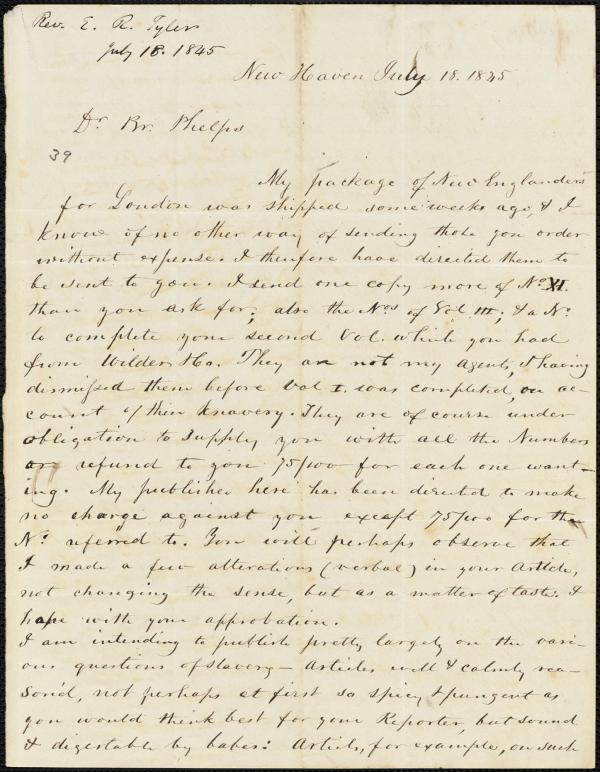 Rev. E. R. Tyler
July 18. 1845
New Haven July 18. 1845
Dr Br. Phelps
39
My package of New Englanders
for London was shipped some weeks ago, & I
know of no other way of sending those you order
without expense. I therefore have directed them to
be sent to you. I send one copy more of No. XI.
than you ask for; also the Nos of Vol. III; & a No.
to complete your second Vol. which you had
from Wilder & Co. They are not my agents, I having
dismissed them before Vol I. was completed, on ac-
count of their knavery. They are of course under
obligation to supply you with all the Numbers
or refund to you 75/100 for each one want-
ing. My publisher here has been directed to make
no charge against you except 75/100 for the
No. referred to. You will perhaps observe that
I made a few alterations (verbal) in your Article,
not changing the sense, but as a matter of taste. I
hope with your approbation.
I am intending to publish pretty largely on the vari-
ous questions of slavery – Articles well & calmly rea-
son'd, not perhaps at first so spicy & pungent as
you would think best for your Reporter, but sound
& digestable by babes: Articles, for example, on such